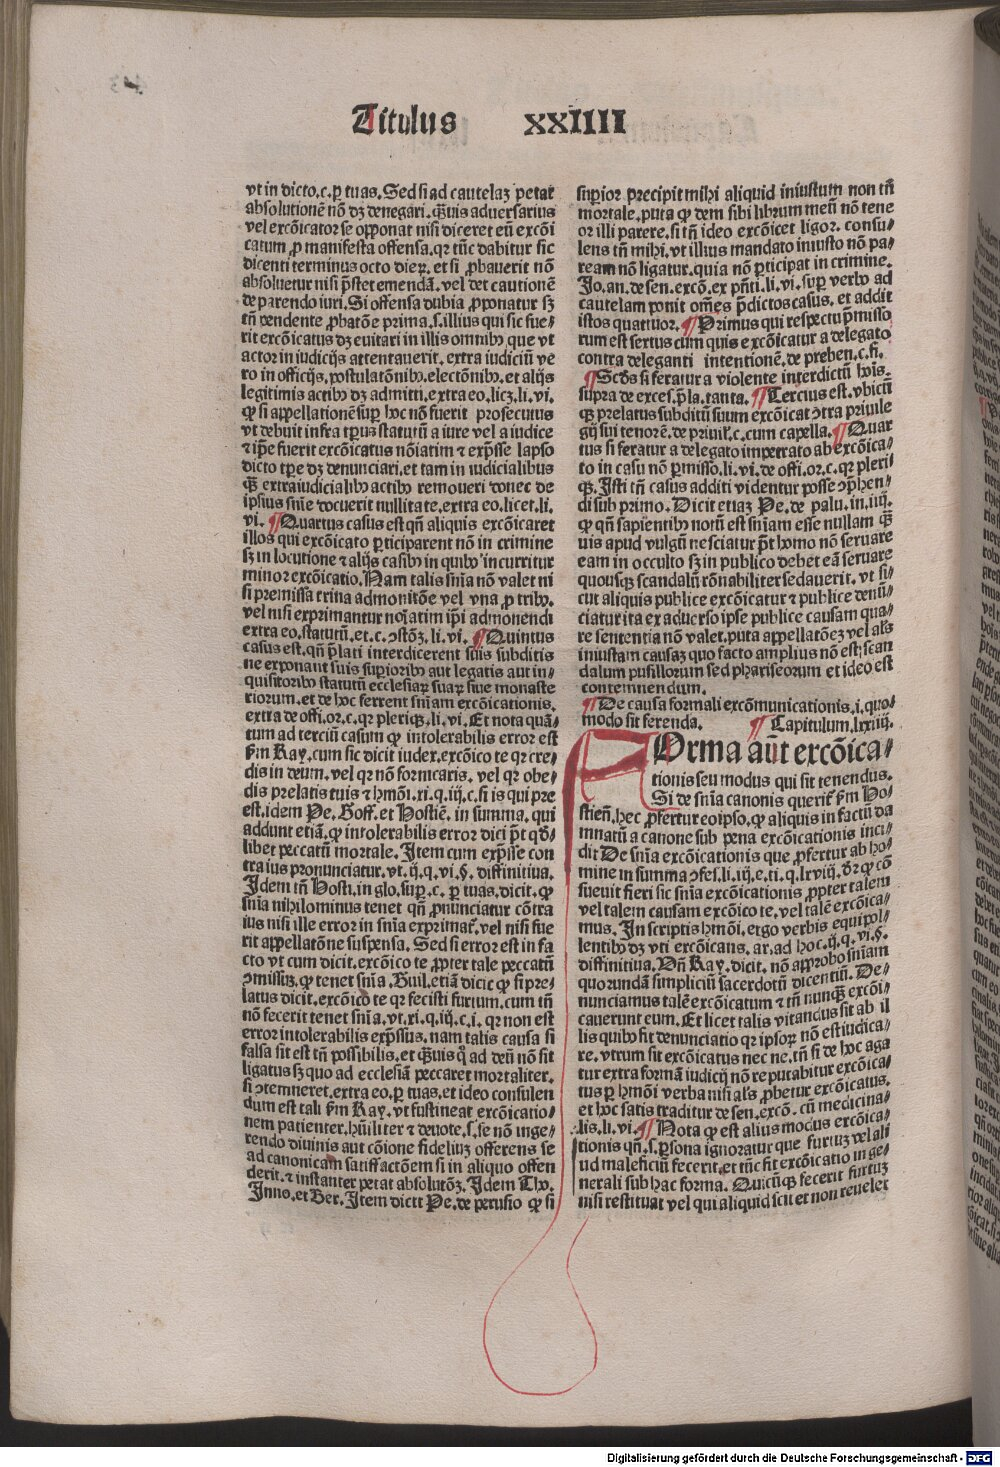 Titulus XXIIII
vt in dicto .c. ꝑ tuas. Sed si ad cautelaꝫ petat
absolutionē nō dꝫ denegari. qͣuis aduersarius
vel excōicator se opponat nisi diceret eū excōi
catum ꝓ manifesta offensa. qꝛ tūc dabitur sic
dicenti terminus octo dieꝝ. et si ꝓbauerit nō
absoluetur nisi p̄stet emendā. vel det cautionē
de parendo iuri. Si offensa dubia ꝓponatur sꝫ
tn̄ pendente ꝓbatōe prima .s. illius qui sic fue⸗
rit excōicatus dꝫ euitari in illis omnibꝰ que vt
actor in iudicijs attentauerit. extra iudiciū ve
ro in officijs. postulatōnibꝰ. electōnibꝰ. et alijs
legitimis actibꝰ dꝫ admitti. extra eo. licꝫ. li. vi.
ꝙ si appellationē suꝑ hoc nō fuerit prosecutus
vt debuit infra tp̄us statutū a iure vel a iudice
⁊ ip̄e fuerit excōicatus nōiatim ⁊ exp̄sse lapso
dicto tp̄e dꝫ denunciari. et tam in iudicialibus
qͣꝫ extraiudicialibꝰ actibꝰ remoueri donec de
ipsius sn̄ie docuerit nullitate. extra eo. licet. li.
vi. ¶ Quartus casus est qn̄ aliquis excōicaret
illos qui excōicato ꝑticiparent nō in crimine
sꝫ in locutione ⁊ alijs casibꝰ in quibꝰ incurritur
minor excōicatio. Nam talis sn̄ia nō valet ni
si premissa trina admonitōe vel vna ꝓ tribꝰ.
vel nisi exprimantur noīatim ip̄i admonendi
extra eo. statutū. et .c. ꝯstōꝫ. li. vi. ¶ Quintus
casus est. qn̄ p̄lati interdicerent suis subditis
ne exponant suis suꝑioribꝰ aut legatis aut in⸗
quisitoribꝰ statutū ecclesiaꝝ suaꝝ siue monaste
riorum. et de hoc ferrent sn̄iam excōicationis.
extra de offi. or. c. qꝛ pleriqꝫ. li. vi. Et nota quā⸗
tum ad terciū casum ꝙ intolerabilis error est
ẜm Ray. cum sic dicit iudex. excōico te qꝛ cre⸗
dis in deum. vel qꝛ nō fornicaris. vel qꝛ obe⸗
dis prelatis tuis ⁊ hmōi. xi. q. iij. c. si is qui pre
est. idem Pe. Goff. et Hostiē. in summa. qui
addunt etiā. ꝙ intolerabilis error dici p̄t qd̄⸗
libet peccatū mortale. Item cum exp̄sse con
tra ius pronunciatur. vt. ij. q. vi. §. diffinitiua.
Idem tn̄ Hosti. in glo. suꝑ .c. ꝑ tuas. dicit. ꝙ
sn̄ia nihilominus tenet qn̄ ꝓnunciatur cōtra
ius nisi ille error in sn̄ia exprimat᷑. vel nisi fue
rit appellatōne suspensa. Sed si error est in fa
cto vt cum dicit. excōico te ꝓpter tale peccatū
ꝯmissuꝫ. ꝙ tenet sn̄ia. Guil. etiā dicit ꝙ si pre⸗
latus dicit. excōico te qꝛ fecisti furtum. cum tn̄
nō fecerit tenet sn̄ia. vt. xi. q. iij. c. i. qꝛ non est
error intolerabilis exp̄ssus. nam talis causa si
falsa sit est tn̄ possibilis. et qͣuis qͦ ad deū nō sit
ligatus sꝫ quo ad ecclesiā peccaret mortaliter.
si ꝯtemneret. extra eo. ꝑ tuas. et ideo consulen
dum est tali ẜm Ray. vt sustineat excōicatio⸗
nem patienter. hūiliter ⁊ deuote .s. se nō inge⸗
rendo diuinis aut cōione fideliuꝫ offerens se
ad canonicam satisfactōem si in aliquo offen
derit. ⁊ instanter petat absolutōꝫ. Idem Tho.
Inno. et Ber. Item dicit Pe. de perusio ꝙ si
suꝑior precipit mihi aliquid iniustum non tn̄
mortale. puta ꝙ dem sibi librum meū nō tene
or illi parere. si tn̄ ideo excōicet ligor. consu⸗
lens tn̄ mihi. vt illius mandato iniusto nō pa⸗
ream nō ligatur. quia nō ꝑticipat in crimine.
Jo. an. de sen. excō. ex p̄nti. li. vi. suꝑ verbo ad
cautelam ponit om̄es p̄dictos casus. et addit
istos quattuor. ¶ Primus qui respectu p̄misso
rum est sextus cum quis excōicatur a delegato
contra deleganti intentionē. de preben. c. fi.
¶ Scd̄s si feratur a violente interdictū hoīs.
supra de exces. p̄la. tanta. ¶ Tercius est. vbicū
qꝫ prelatus subditū suum excōicat ꝯtra priuile
gij sui tenorē. de priuil. c. cum capella. ¶ Quar
tus si feratur a delegato impetrato ab excōica⸗
to in casu nō ꝑmisso. li. vi. de offi. or. c. qꝛ pleri
qꝫ. Isti tn̄ casus additi videntur posse ꝯp̄hen⸗
di sub primo. Dicit etiaꝫ Pe. de palu. in. iiij.
ꝙ qn̄ sapientibꝰ notū est sn̄iam esse nullam qͣꝫ
uis apud vulgū nesciatur p̄t homo nō seruare
eam in occulto sꝫ in publico debet eā seruare
quousqꝫ scandalū rōnabiliter sedauerit. vt si⸗
cut aliquis publice excōicatur ⁊ publice denū⸗
ciatur ita ex aduerso ipse publice causam qua⸗
re sententia nō valet. puta appellatōeꝫ vel al̓s
iniustam causaꝫ quo facto amplius nō est scan
dalum pusillorum sed phariseorum et ideo est
contemnendum.
¶ De causa formali excōmunicationis. i. quo⸗
modo sit ferenda. ¶ Capitulum. lxxiiij.
FOrma aūt excōica⸗
tionis seu modus qui sit tenendus.
Si de sn̄ia canonis querit᷑ ẜm Ho⸗
stien̄. hec ꝓfertur eoip̄o. ꝙ aliquis in factū da
mnatū a canone sub pena excōicationis inci⸗
dit De sn̄ia excōicationis que ꝓfertur ab ho⸗
mine in summa ꝯfes. li. iij. e. ti. q. lxviij. dr̄ ꝙ cō
sueuit fieri sic sn̄ia excōicationis ꝓpter talem
vel talem causam excōico te. vel talē excōica⸗
mus. In scriptis hmōi. et go verbis equipol⸗
lentibꝰ dꝫ vti excōicans. ar. ad hoc. ij. q. vi. §.
diffinitiua. Dn̄ Ray. dicit. nō approbo sn̄iam
quorundā simpliciū sacerdotū dicentiū. De⸗
nunciamus talē excōicatum ⁊ tn̄ nunqͣꝫ excōi⸗
cauerunt eum. Et licet talis vitandus sit ab il
lis quibꝰ fit denunciatio qꝛ ipsoꝝ nō est iudica⸗
re. vtrum sit excōicatus nec ne. tn̄ si de hoc aga
tur extra formā iudicij nō reputabitur excōica⸗
tus ꝑ hmōi verba nisi al̓s ꝓbetur excōicatus.
et hoc satis traditur de sen. excō. cū medicina⸗
lis. li. vi. ¶ Nota ꝙ est alius modus excōica⸗
tionis qn̄ .s. ꝑsona ignoratur que furtuꝫ vel ali
ud maleficiū fecerit. et tūc fit excōicatio in ge⸗
nerali sub hac forma. Quicūqꝫ fecerit furtuꝫ
nisi restituat vel qui aliquid scit et non reuelet
Digitalisierung gefördert durch die Deutsche Forschungsgemeinschaft - DFG